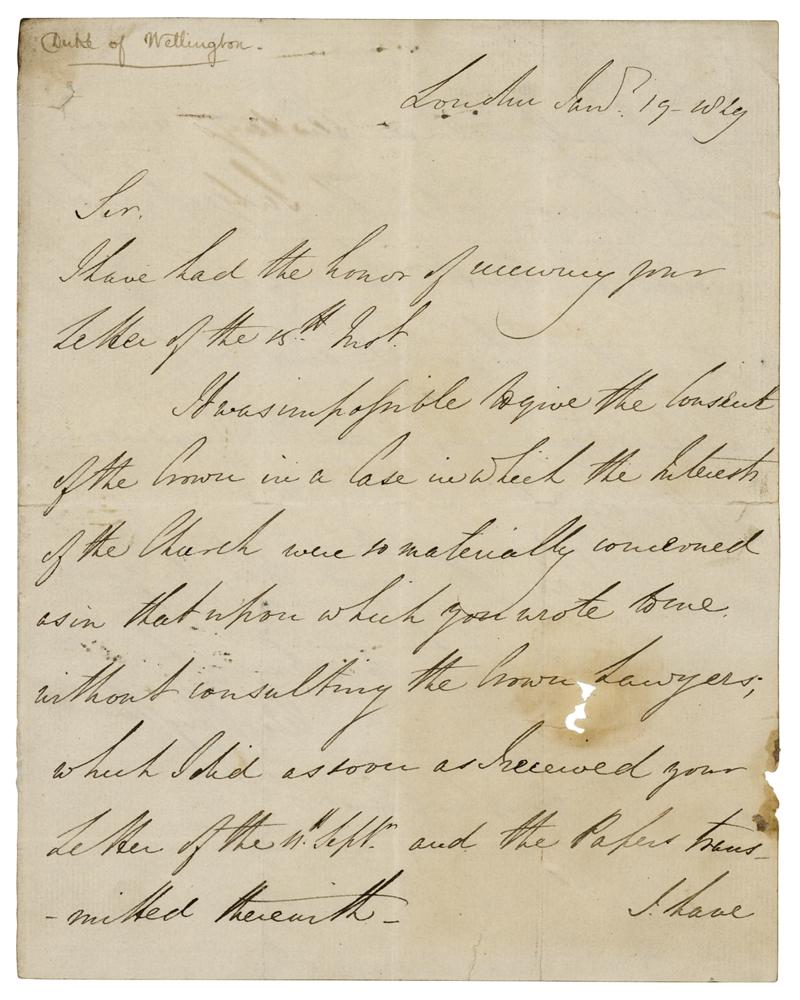 Duke of Wellington.
London Jany. 19 - 1829
Sir.
I have had the honor of receiving your
Letter of the 15th Inst.
It was impossible to give the Consent
of the Crown in a Case in which the Interests
of the Church were so materially concerned
as in that upon which you wrote to me.
without consulting the Crown Lawyers;
which I did as soon as I received your
Letter of the 11th Septr. and the Papers trans-
-mitted therewith -
I have